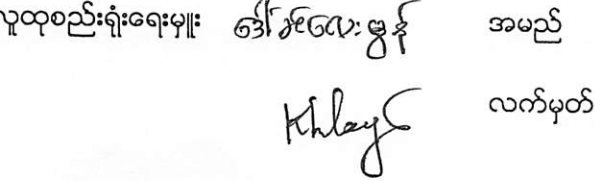 လူထုစည်းရုံးရေးမှူး ဒေါ်ခင်လေးမွန် အမည်
Khlay လက်မှတ်